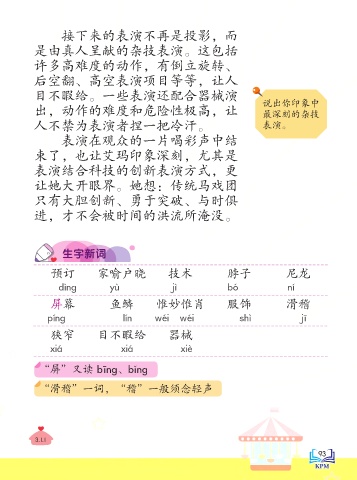 接下来的表演不再是投影，而
是由真人呈献的杂技表演。这包括
许多高难度的动作，有倒立旋转、
后空翻、高空表演项目等等，让人
目不暇给。一些表演还配合器械演
出，动作的难度和危险性极高，让
人不禁为表演者捏一把冷汗。
表演在观众的一片喝彩声中结
束了，也让艾玛印象深刻，尤其是
表演结合科技的创新表演方式，更
让她大开眼界。她想：传统马戏团
只有大胆创新、勇于突破、与时俱
进，才不会被时间的洪流所淹没。
说出你印象中
最深刻的杂技
表演。
生字新词
预订 家喻户晓 技术 脖子 尼龙
dìng yù jì bó ní
屏幕 鱼鳞 惟妙惟肖 服饰 滑稽
píng lín wéi wéi shì jī
狭窄 目不暇给 器械
xiá xiá xiè
“屏”又读 bīng、bǐng
“滑稽”一词，“稽”一般须念轻声
3.11
93
KPM